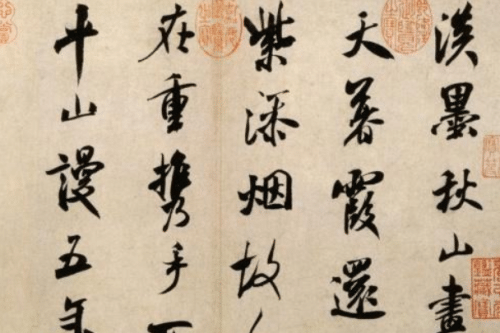 淡墨秋山畫
天暮霞還
紫添烟故
在重携手
平山謾五年